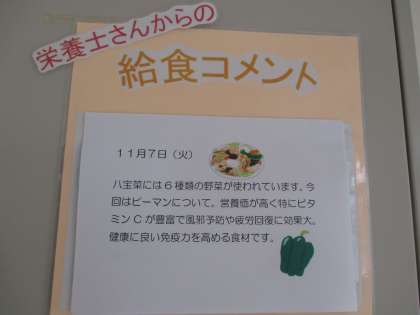 栄養士さんからの
給食コメント
11月7日（火）
八宝菜には6種類の野菜が使われています。今
回はピーマンについて。営養価が高く特にビタ
ミンCが豊富で風邪予防や疲労回復に効果大。
健康に良い免疫力を高める食材です。